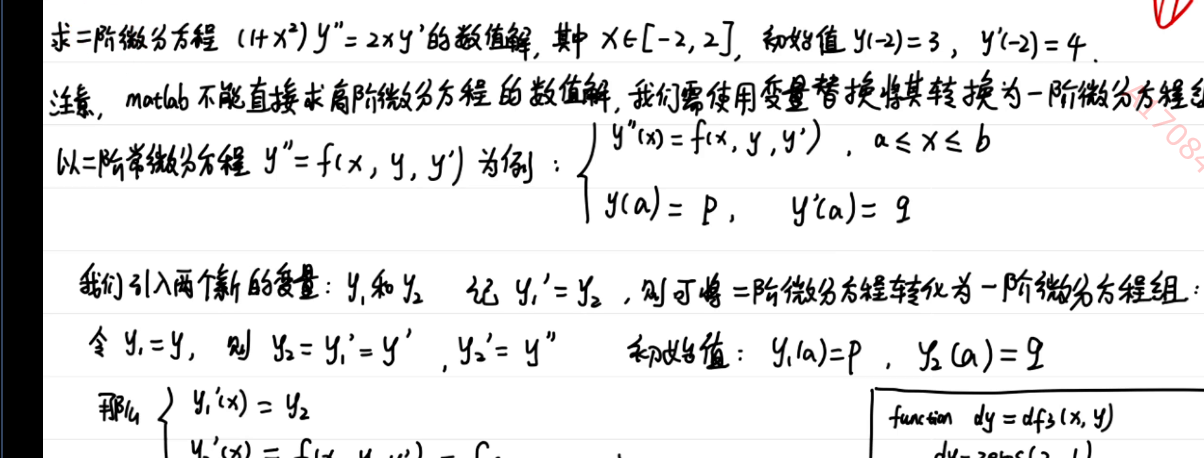 求二阶微分方程 (1+x²)y"=2xy'的数值解, 其中 x∈[-2,2], 初始值 y(-2)=3, y'(-2)=4.
注意, matlab 不能直接求高阶微分方程的数值解, 我们需使用变量替换将其转换为一阶微分方程组
17084
以二阶常微分方程 y"=f(x, y, y') 为例: { y"(x)=f(x, y, y'), a≤x≤b
y(a)=p, y'(a)=q
我们引入两个新的变量: y₁和y₂ 记 y₁'=y₂, 则可将二阶微分方程转化为一阶微分方程组:
令 y₁=y, 则 y₂=y₁'=y', y₂'=y" 初始值: y₁(a)=p, y₂(a)=q
那么 { y₁'(x)=y₂
function dy=df3(x,y)
y₂'(x)=f(x, y, y')=f
dy=zeros(2,1)